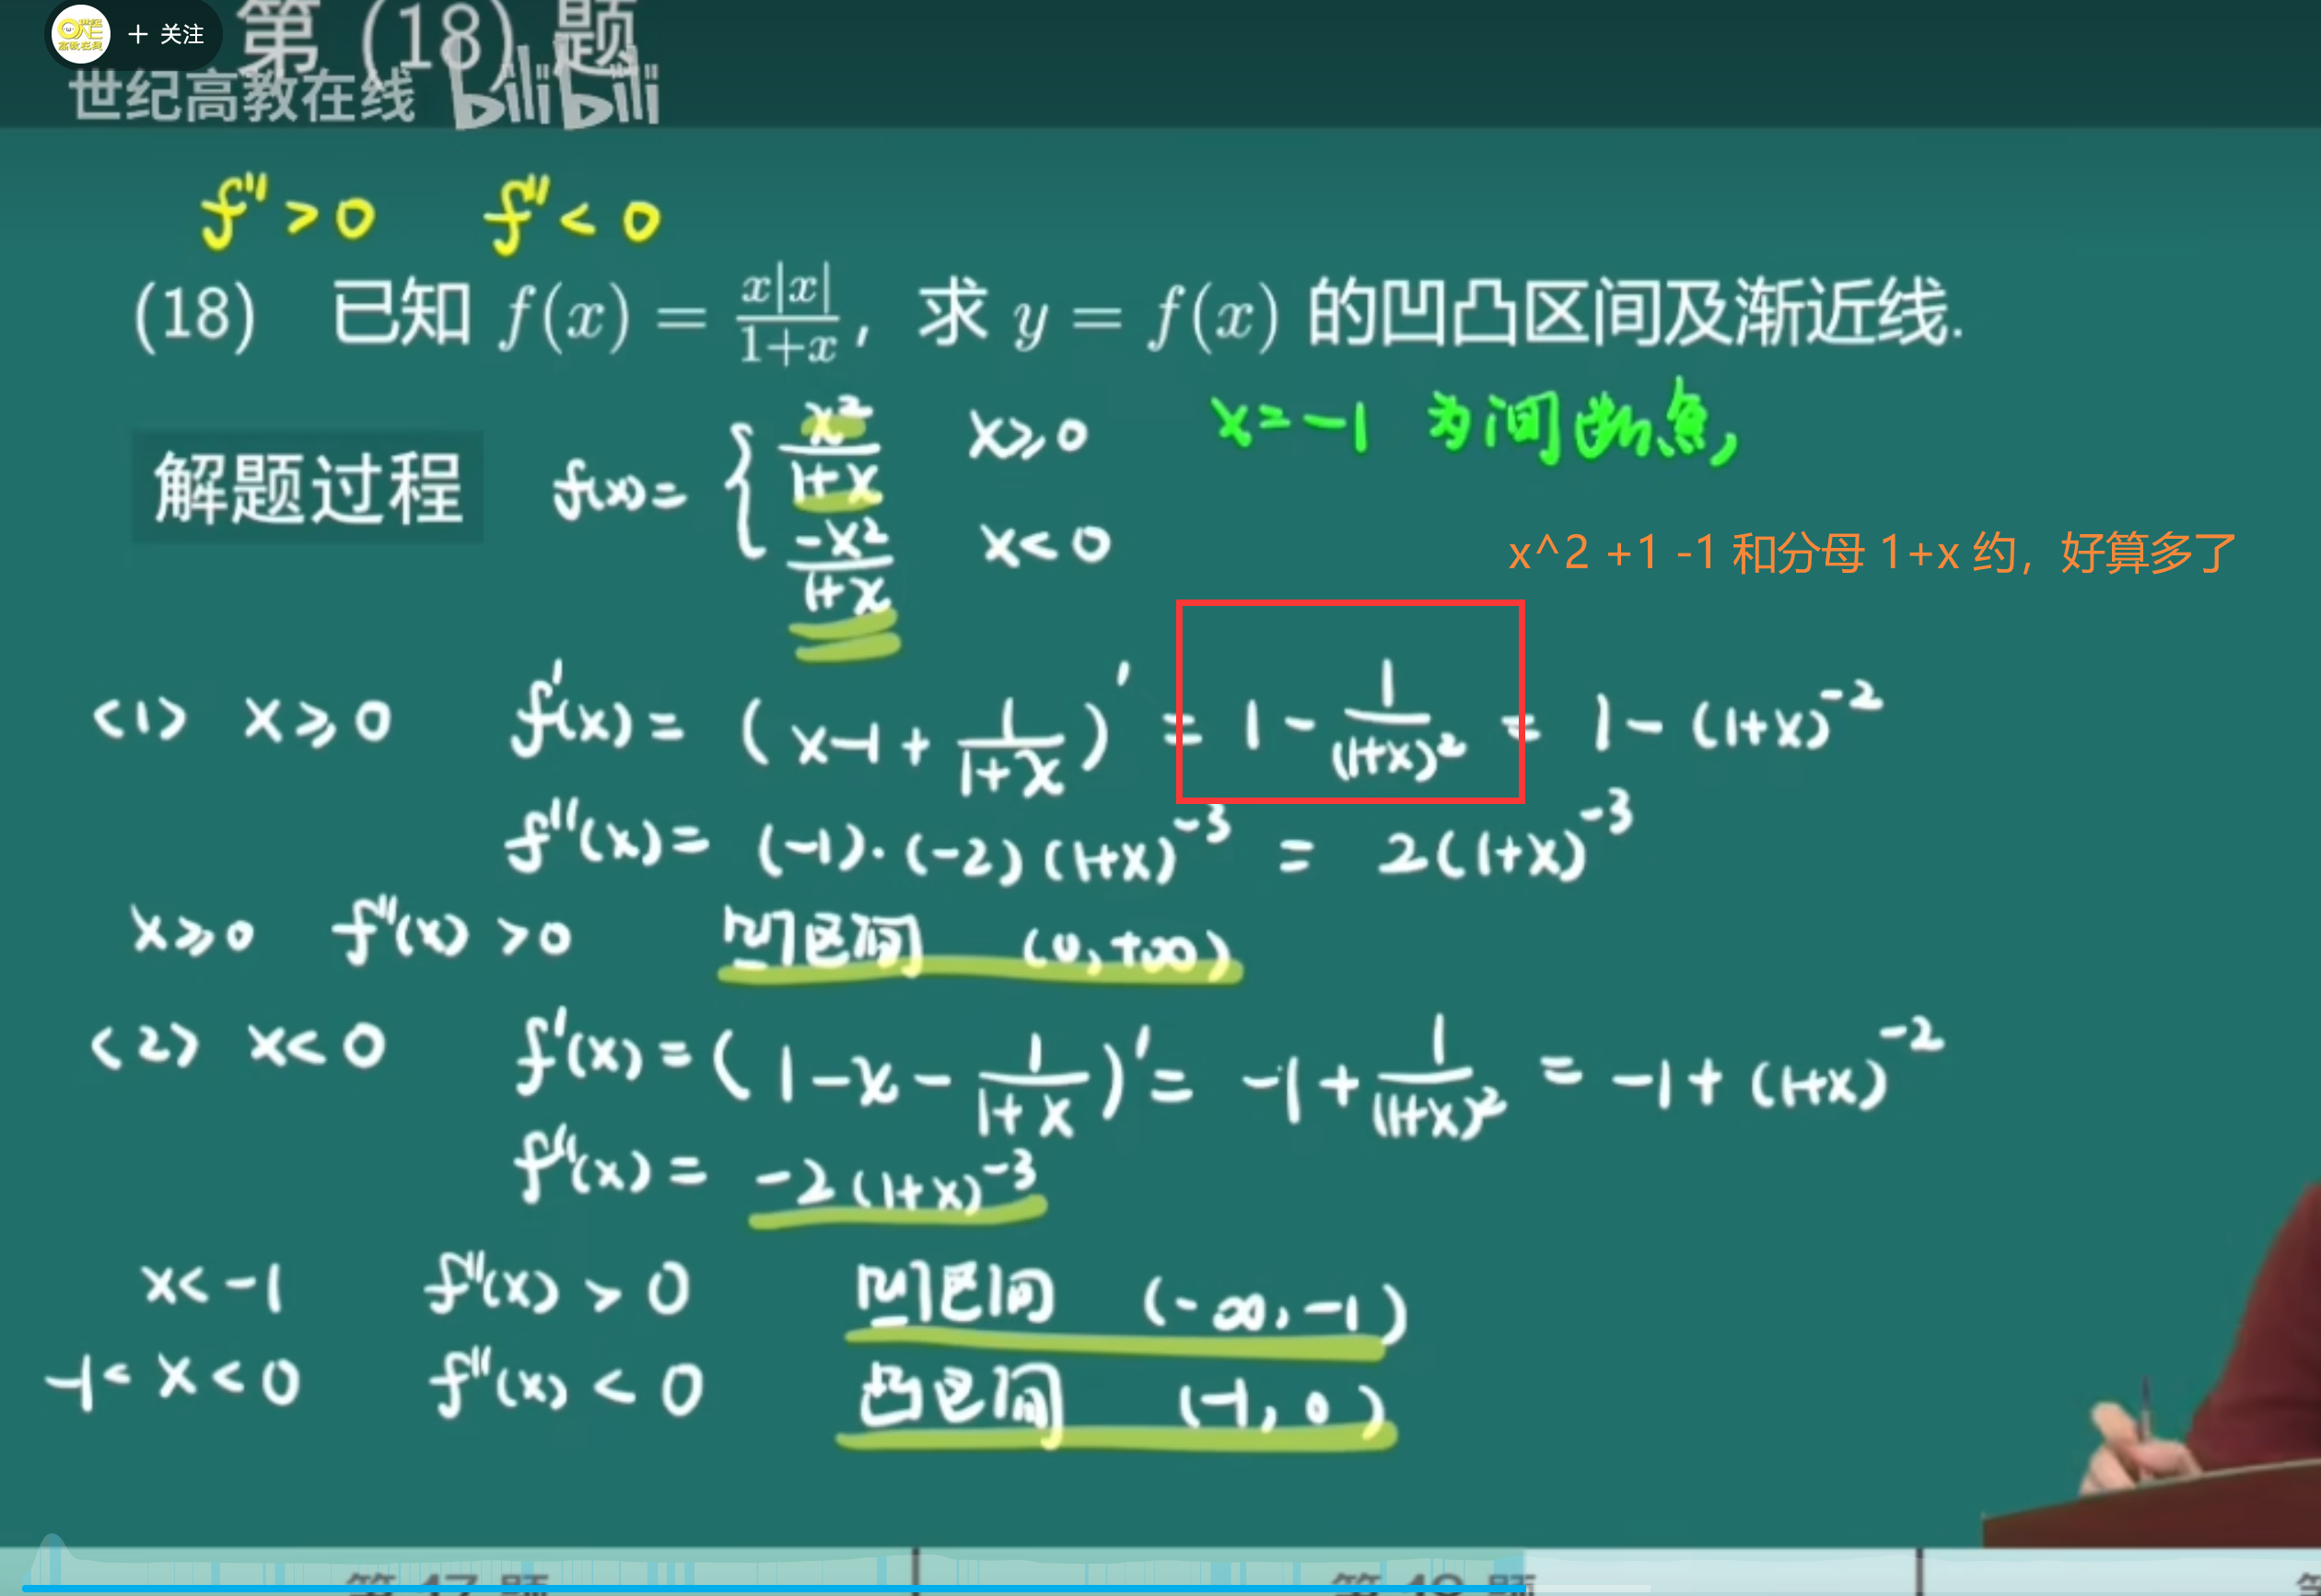 + 关注
第 (18) 题
世纪高教在线 bilibili
f''>0 f''<0
(18) 已知 f(x) = x|x|/(1+x), 求 y = f(x) 的凹凸区间及渐近线.
x=-1 为间断点,
解题过程 f(x)= { x²/(1+x) x≥0
-x²/(1+x) x<0
x^2 +1 -1 和分母 1+x 约，好算多了
<1> x≥0 f'(x) = (x-1+1/(1+x))' = 1-1/(1+x)² = 1-(1+x)⁻²
f''(x)= (-1)·(-2)(1+x)⁻³ = 2(1+x)⁻³
x≥0 f''(x) >0 凹区间 (0,+∞)
<2> x<0 f'(x) = (1-x-1/(1+x))' = -1+1/(1+x)² = -1+(1+x)⁻²
f''(x) = -2(1+x)⁻³
x<-1 f''(x) > 0 凹区间 (-∞,-1)
-1<x<0 f''(x) < 0 凸区间 (-1,0)
第 17 题 第 18 题